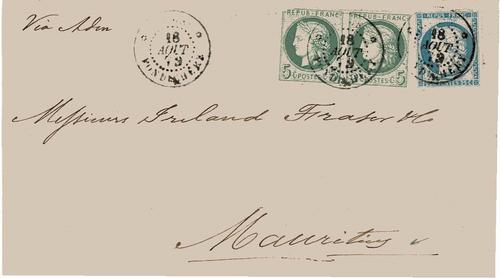 Via Aden
18
AOUT
79
PONDICHERY
REPUB·FRANC
5 C POSTES
REPUB·FRANC
POSTES 5 C
18
AOUT
79
REPUB·FRANC
18
AOUT
79
Messieurs Ireland Fraser & Co
Mauritius